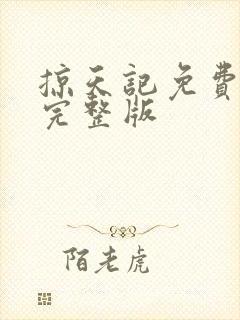 掠天記免費
完整版
陌老虎